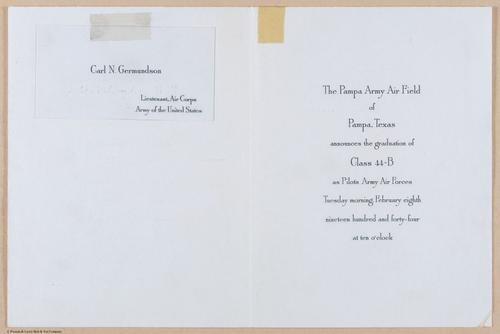 Carl N. Germundson
Lieutenant, Air Corps
Army of the United States
The Pampa Army Air Field
of
Pampa, Texas
announces the graduation of
Class 44-B
as Pilots, Army Air Forces
Tuesday morning, February eighth
nineteen hundred and forty-four
at ten o'clock